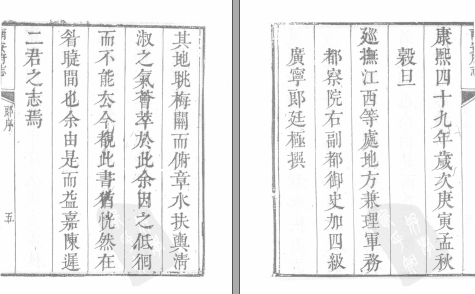 其地眺梅關而俯章水扶輿清
淑之氣薈萃於此余因之低徊
而不能去今觀此書猶恍然在
眥睫間也余由是而益嘉陳遲
二君之志焉
郎序
五
康熙四十九年歲次庚寅孟秋
穀旦
廵撫江西等處地方兼理軍務
都察院右副都御史加四級
廣寧郎廷極撰